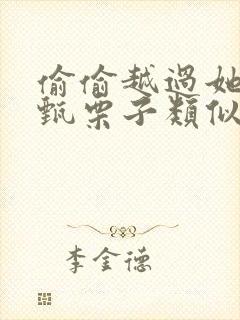 偷偷越過她
甄栗子類似
李金德